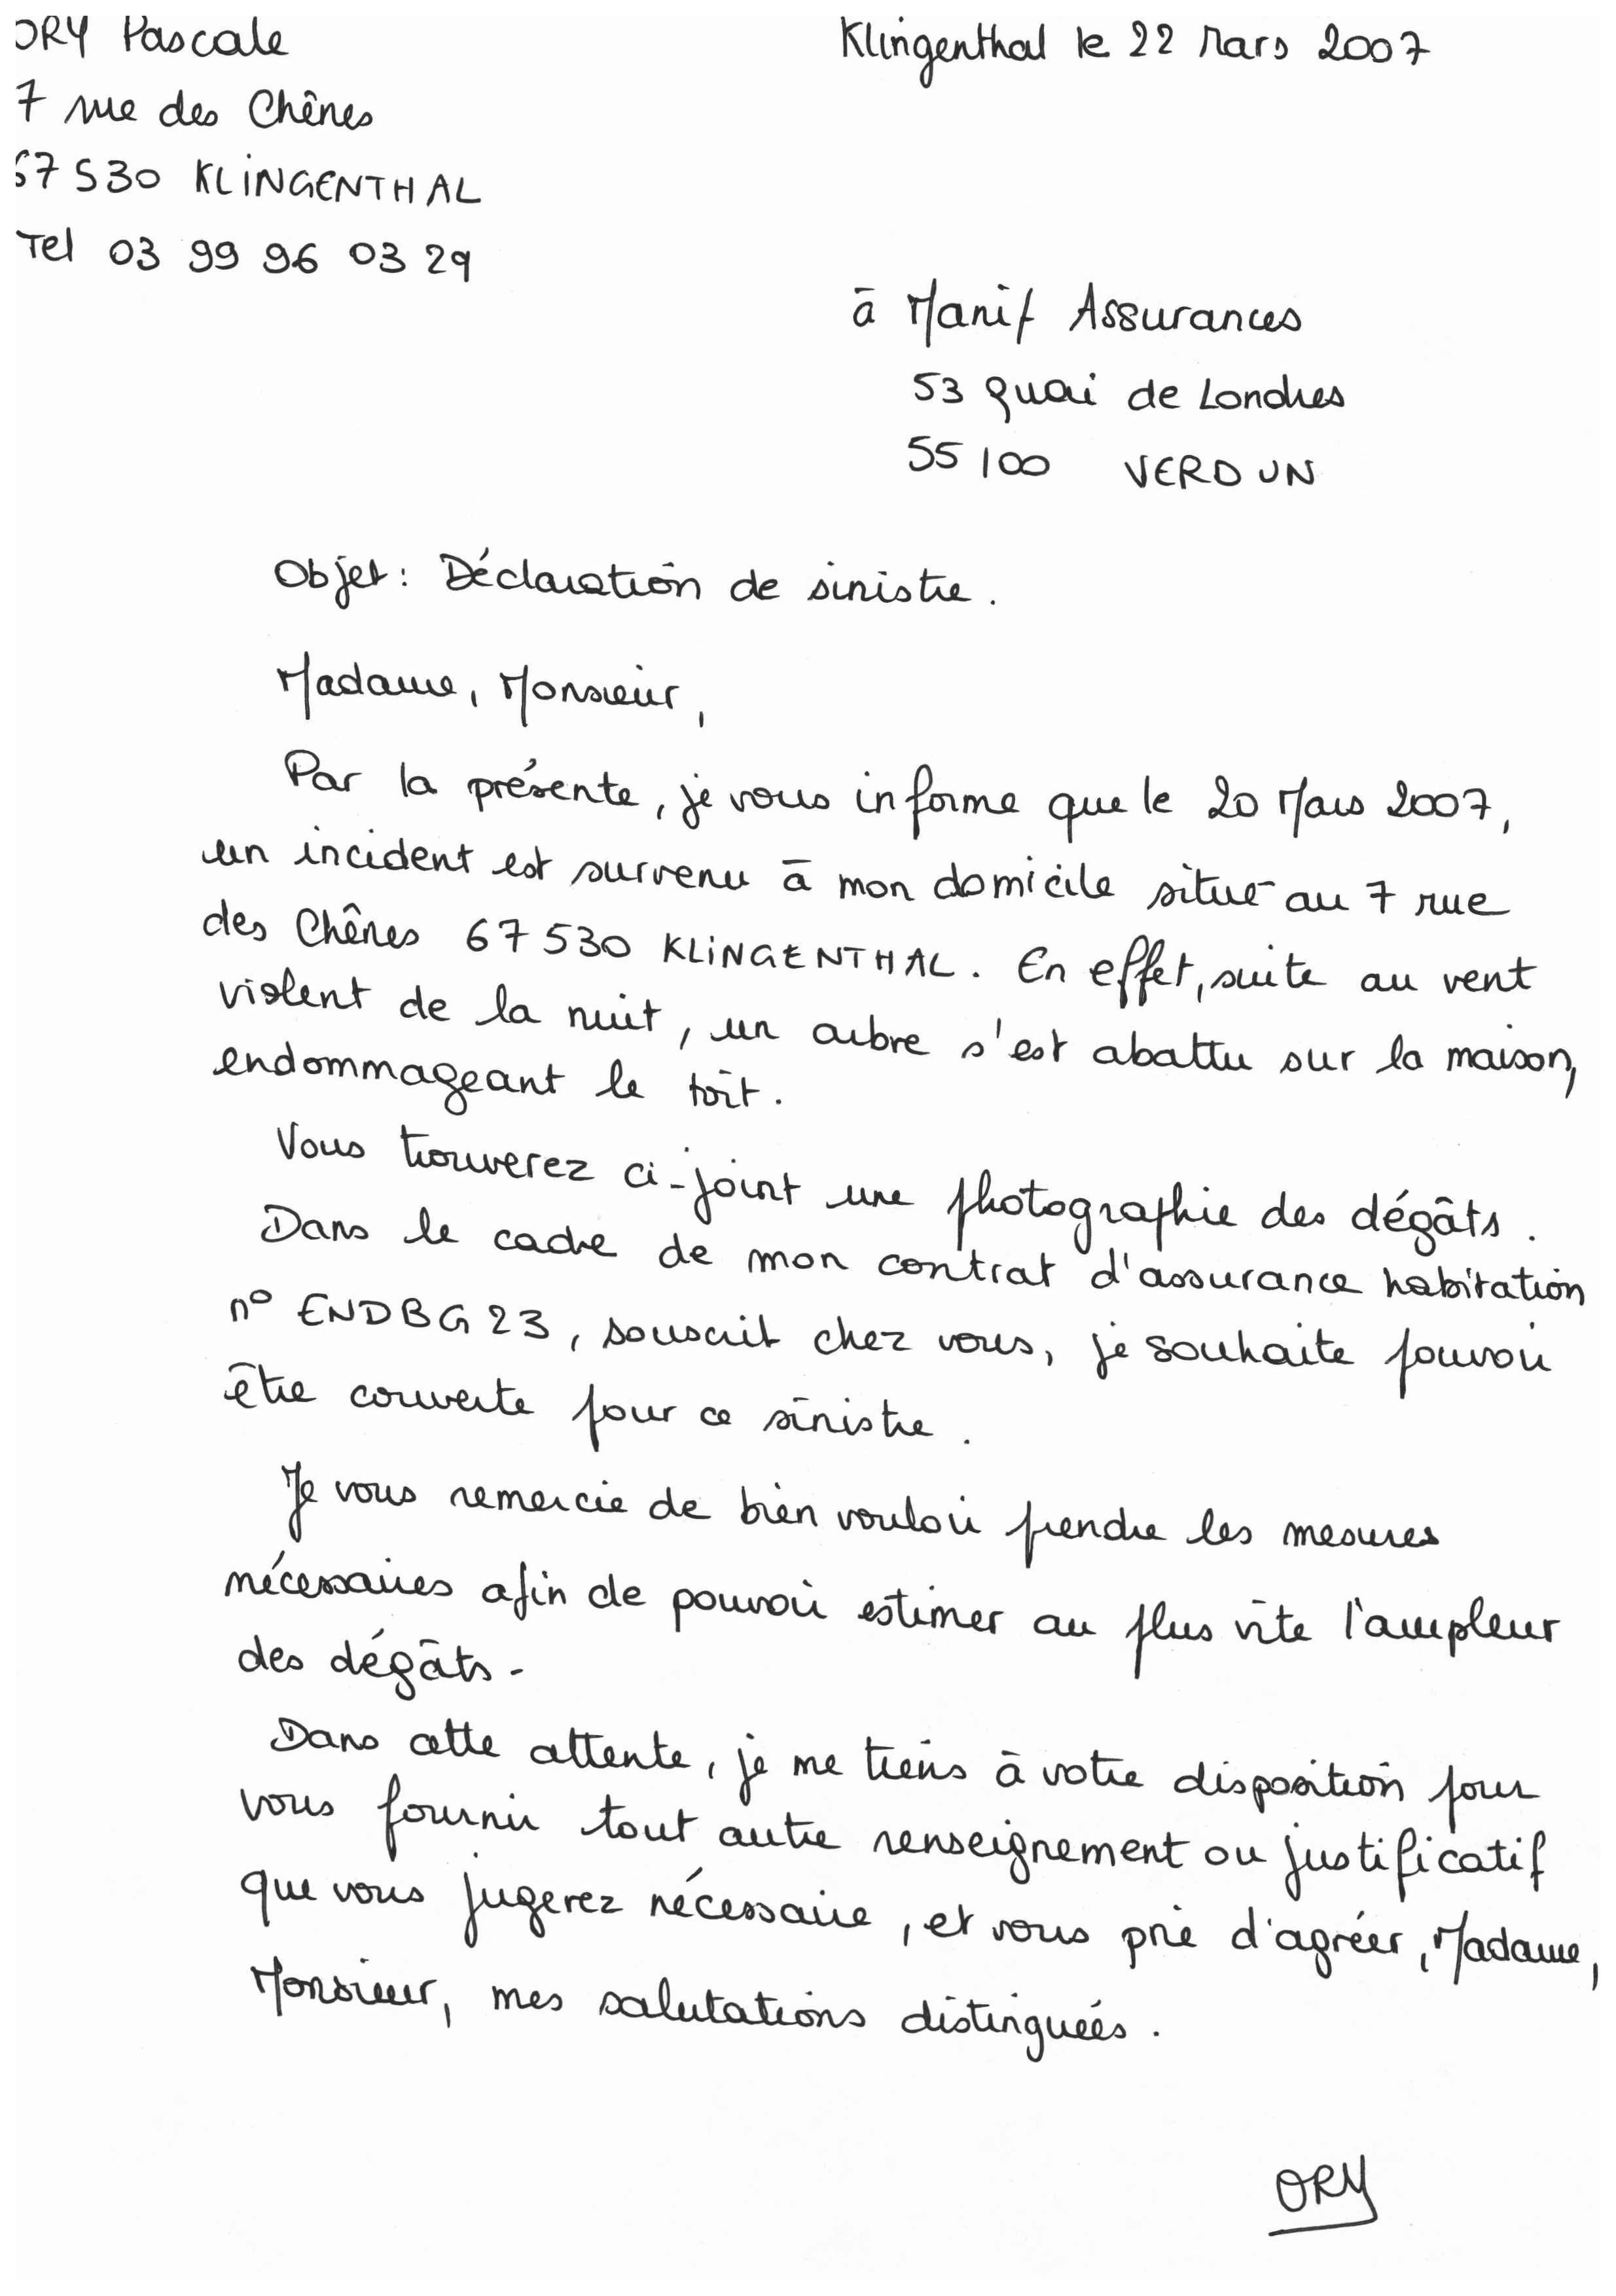 ORY Pascale
Klingenthal le 22 Mars 2007
7 rue des Chênes
67530 KLINGENTHAL
Tel 03 99 96 03 29
à Manif Assurances
53 Quai de Londres
55100 VERDUN
Objet : Déclaration de sinistre.
Madame, Monsieur,
Par la présente, je vous informe que le 20 Mars 2007,
un incident est survenu à mon domicile situé au 7 rue
des Chênes 67530 KLINGENTHAL. En effet, suite au vent
violent de la nuit, un arbre s'est abattu sur la maison,
endommageant le toît.
Vous trouverez ci-joint une photographie des dégâts.
Dans le cadre de mon contrat d'assurance habitation
n° ENDBG23, souscrit chez vous, je souhaite pouvoir
être couverte pour ce sinistre.
Je vous remercie de bien vouloir prendre les mesures
nécessaires afin de pouvoir estimer au plus vite l'ampleur
des dégâts.
Dans cette attente, je me tiens à votre disposition pour
vous fournir tout autre renseignement ou justificatif
que vous jugerez nécessaire, et vous prie d'agréer, Madame,
Monsieur, mes salutations distinguées.
ORY